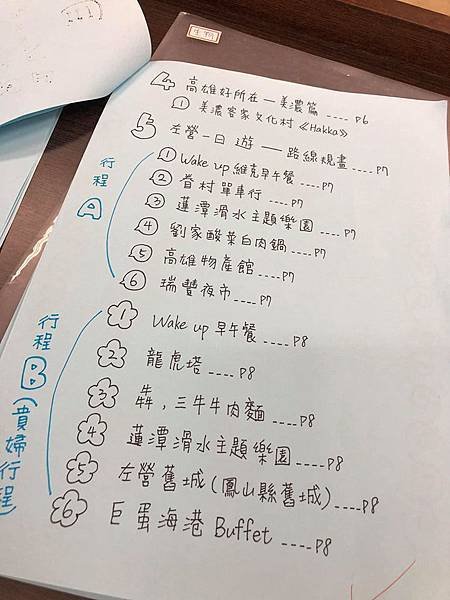 4 高雄好所在 — 美濃篇 ---- P6
① 美濃客家文化村《Hakka》
5 左營一日遊 — 路線規畫 ---- P7
行程A
① Wake up 維克早午餐 ---- P7
② 眷村單車行 ---- P7
③ 蓮潭滑水主題樂園 ---- P7
④ 劉家酸菜白肉鍋 ---- P7
⑤ 高雄物產館 ---- P7
⑥ 瑞豐夜市 ---- P7
行程B(貴婦行程)
① Wake up 早午餐 ---- P8
② 龍虎塔 ---- P8
③ 犇, 三牛牛肉麵 ---- P8
④ 蓮潭滑水主題樂園 ---- P8
⑤ 左營舊城(鳳山縣舊城) ---- P8
⑥ 巨蛋海港 Buffet ---- P8